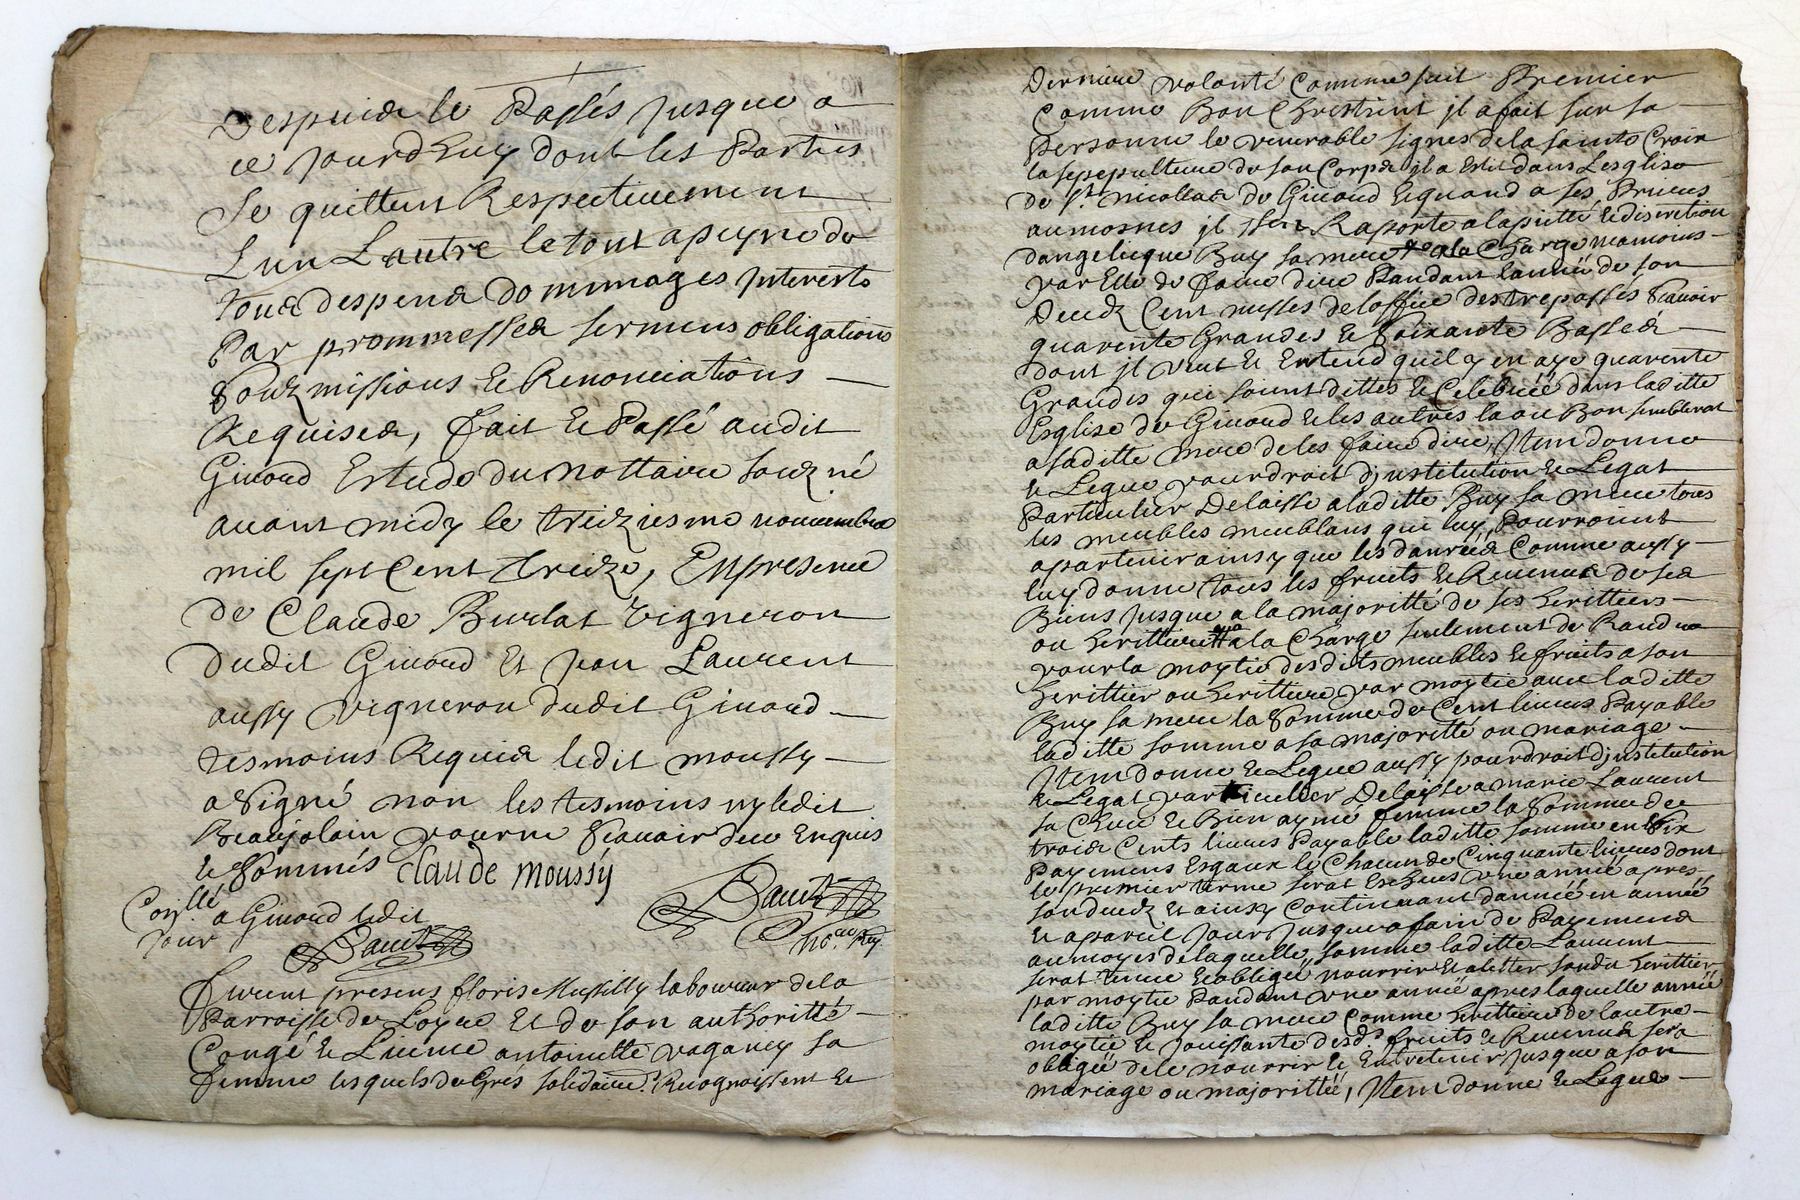 Despuis le Passés jusques a
ce jourdhuy dont les Parties
Se quittent Respectivement
Lun Lautre le tout a peyne de
tous despens dommages interests
Par prommesses sermens obligations
Soubzmissions & Renonciations
Requises, fait & Passé audit
Givord Estude du nottaire soubzné
avant midy le treiziesme novembre
mil sept Cent treize, En presence
de Claude Burlat vigneron
dudit Givord Et jean Laurent
aussy vigneron dudit Givord
tesmoins Requis ledit moussy
a Signé non les tesmoins ny ledit
Beaujolain pour ne Scavoir de ce Enquis
& Sommés Claude moussy
Conllé a Givord ledit
jour
furent presens floris laboureur de la
Parroisse de Loyre Et de son authoritté
Congé & Licence antoinette vaganey sa
femme lesquels de Grés solidaire. Recognoissent &
Derniere volonté Comme suit Premier
Comme Bon Chrestient il a fait sur sa
Personne le venerable signes de la sainte Croix
la sepepulture de son Corps il a Eslit dans Lesglise
de St. nicollas de Givord & quand a ses Prieres
aumosnes il sen Raporte a la pitté & discretion
dangelique Buy sa mere a la Charge neamoins
par Elle de faire dire Pandant lannée de son
Deudz Cent messes de loffice des trepasses Scavoir
quarente Grandes & Soixante Basses
dont il veut & Entend quil y en aye quarente
Grandes qui soient dittes & Celebrée dans laditte
Esglise de Givord & les autres la ou Bon semblerat
a saditte mere de les faire dire, Item donne
& Legue pour droit dinstitution & Legat
Particulier Delaisse a laditte Buy sa mere tous
les meubles meublans qui luy Pourroient
apartenir ainsy que les danrées Comme aussy
luy donne tous les fruits & Revenus de ses
Biens jusque a la majoritté de ses heritiers
ou herittiere a la Charge seulement de Randre
pour la moytie desdits meubles & fruits a son
herittier ou herittiere par moytie avec laditte
Buy sa mere la Somme de Cent livres Payable
laditte somme a sa majoritté ou mariage
Item donne & Legue aussy pour droit dinstitution
& Legat particulier Delaisse a marie Laurent
sa Chere & Bien aymé femme la Somme de
trois Cents livres Payable laditte somme en Six
Payemens Esgaux & Chacun de Cinquante livres dont
le premier terme serat Escheus une année apres
son deudz Et ainsy Continuant dannée en année
& a pareil jour jusque a fain de Payemens
au moyes de laquelle somme laditte Laurent
serat tenue & obligée nourrir Et aletter sondit herittier
par moytie Pandant une année apres laquelle année
laditte Buy sa mere Comme herittiere de lautre
moytie & jouissante desds. fruits & Revenus sera
obligée de le nourrir & Entretenir jusque a son
mariage ou majorittée, Item donne & Legue